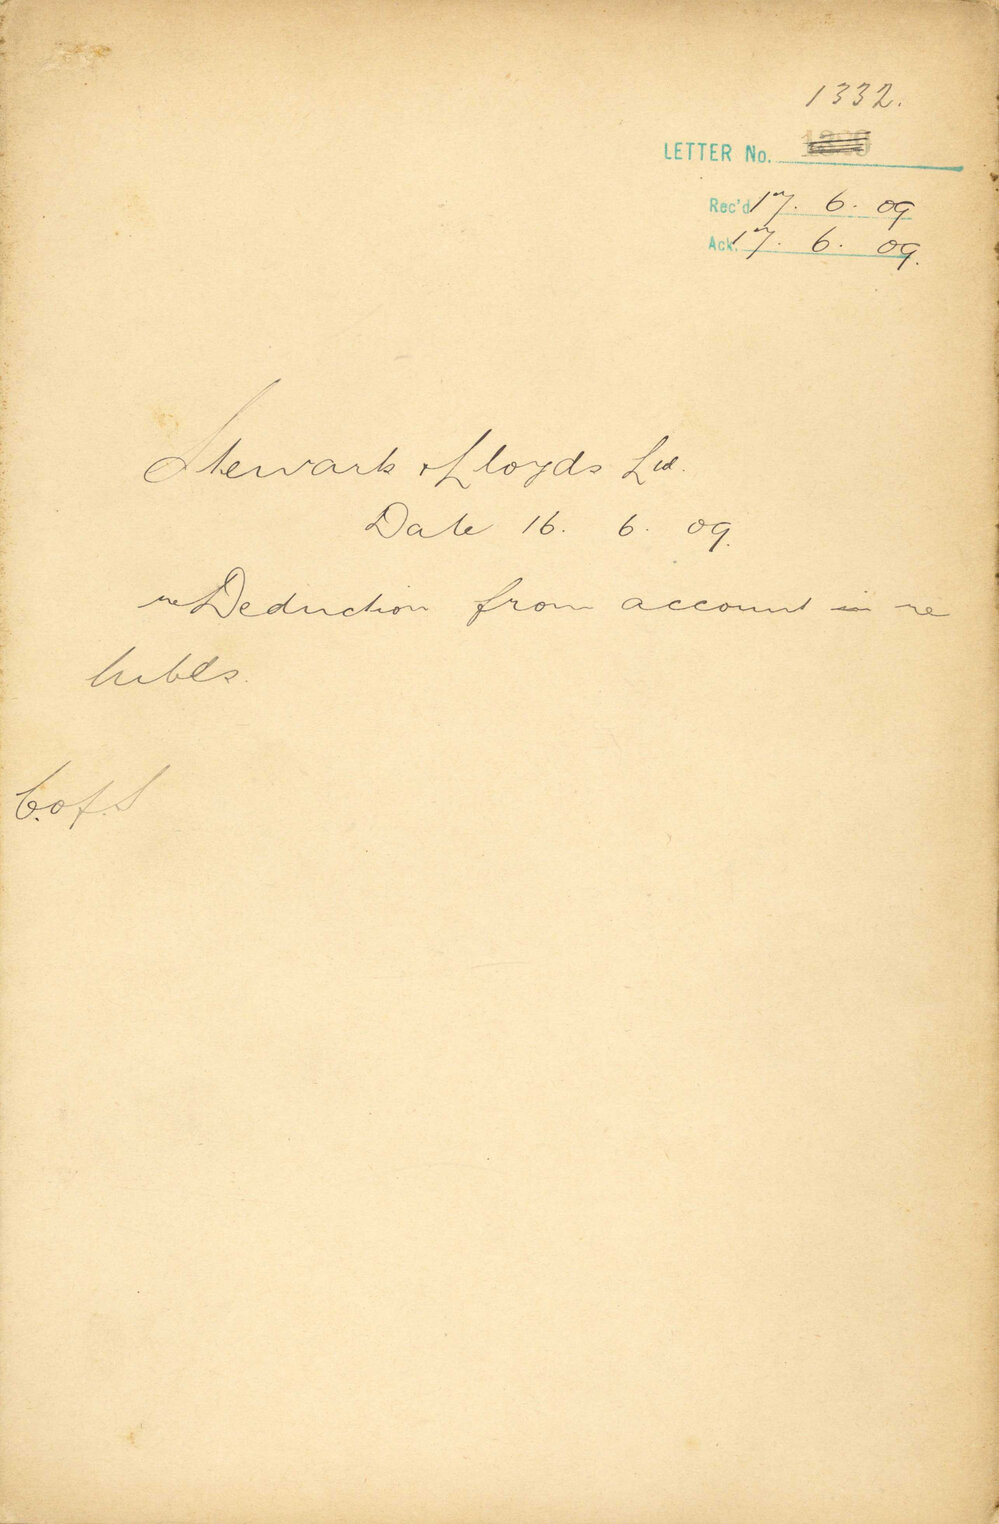 1332.
LETTER No.
Rec'd 17. 6. 09
Ack. 17. 6. 09.
Stewarts & Lloyds Ltd.
Date 16. 6. 09.
re Deduction from account in re
tubes.
C. of S